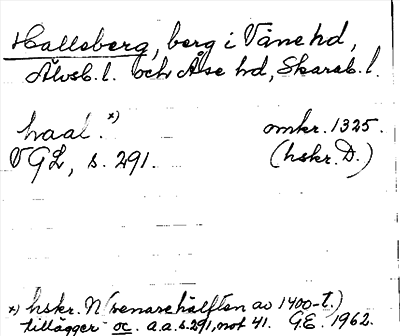 Halleberg, berg i Väne hd,
Älvsb. l. och Åse hd, Skarab. l.
haal. *)
omkr. 1325.
VGL, s. 291.
(hskr. D.)
*) hskr. N (senare hälften av 1400-t.)
tillägger oc. a.a. s. 291, not 41. G.E. 1962.